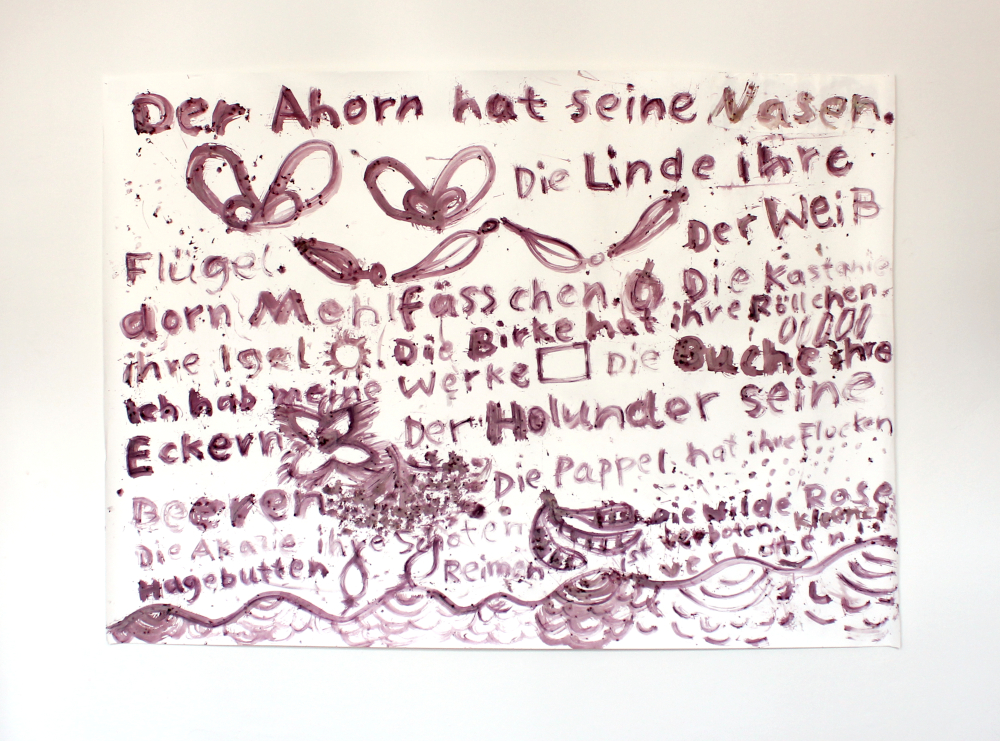 Der Ahorn hat seine Nasen.
Die Linde ihre
Flügel. Der Weiß
dorn Mehlfässchen. Die Kastanie
ihre Igel. Die Birke hat ihre Röllchen.
Ich hab meine Werke Die Buche ihre
Eckern Der Holunder seine
Beeren. Die Pappel hat ihre Flocken
Die Akazie ihre Schoten Die Wilde Rose
Hagebutten Reimen ist verboten.
ist verboten